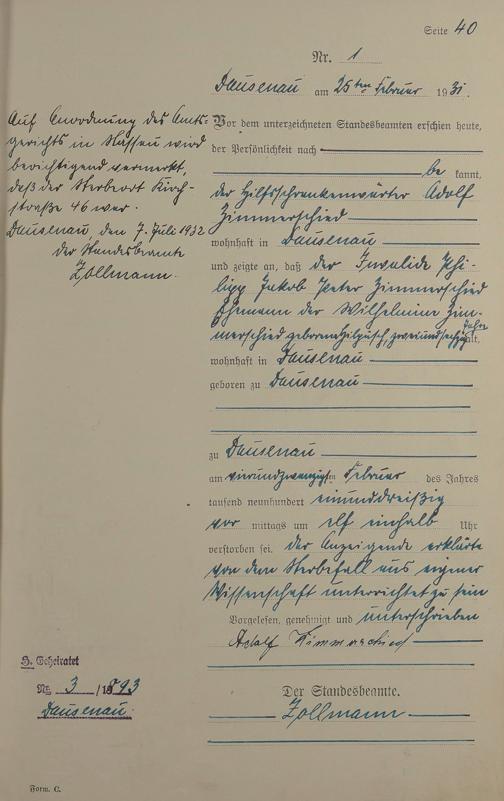 Seite 40
Nr. 1
Dausenau am 25ten Februar 1931.
Auf Anordnung des Amts-
gerichts in Nassau wird
berichtigend vermerkt,
daß der Sterbeort Kirch-
straße 46 war.
Dausenau, den 7. Juli 1932
der Standesbeamte
Zollmann.
Vor dem unterzeichneten Standesbeamten erschien heute,
der Persönlichkeit nach
be kannt,
der Hilfsschrankenwärter Adolf
Zimmerschied
wohnhaft in Dausenau
und zeigte an, daß der Invalide Phi-
lipp Jakob Peter Zimmerschied
Ehemann der Wilhelmine Zim-
merschied geborene Hilpüsch, zweiundsechzig Jahre alt,
wohnhaft in Dausenau
geboren zu Dausenau
zu Dausenau
am vierundzwanzigsten Februar des Jahres
tausend neunhundert einunddreißig
vor mittags um elf einhalb Uhr
verstorben sei. Der Anzeigende erklärte
von dem Sterbefall aus eigener
Wissenschaft unterrichtet zu sein
Vorgelesen, genehmigt und unterschrieben
Adolf Zimmerschied
Der Standesbeamte.
Zollmann
H. Geheiratet
Nr. 3 / 1893
Dausenau.
Form. C.